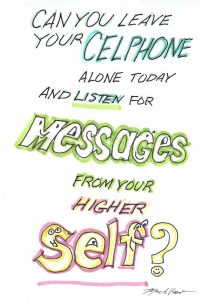 CAN YOU LEAVE
YOUR CELPHONE
ALONE TODAY
AND LISTEN FOR
MESSAGES
FROM YOUR
HIGHER
Self?